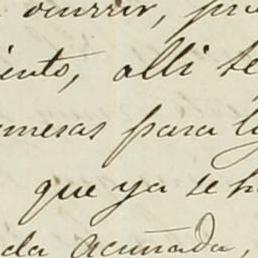 ocurrir, pu
iento, alli se
mesas para l
que ya se h
da acuñada,